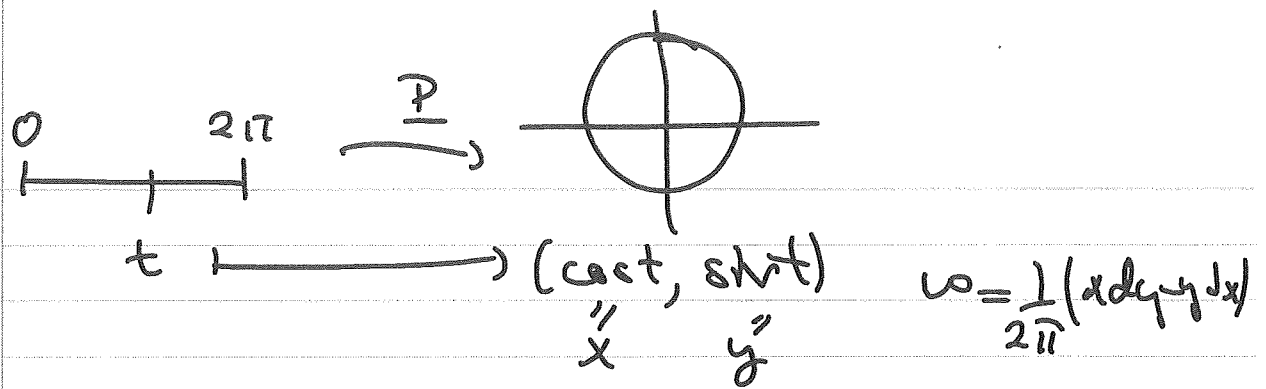 P
0 2π
t ⟼ (cos t, sin t) ω = 1/2π (x dy - y dx)
x y